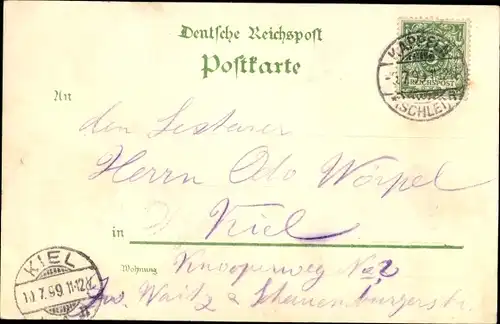 Deutsche Reichspost
Postkarte
KAPPELN
7.99
(SCHLEI)
REICHSPOST
An
den
Herrn Odo Wörpel
in Kiel
Wohnung Knooperweg No 2
Zw. Waitz & Schauenburgerstr.
KIEL
10.7.99.11-12